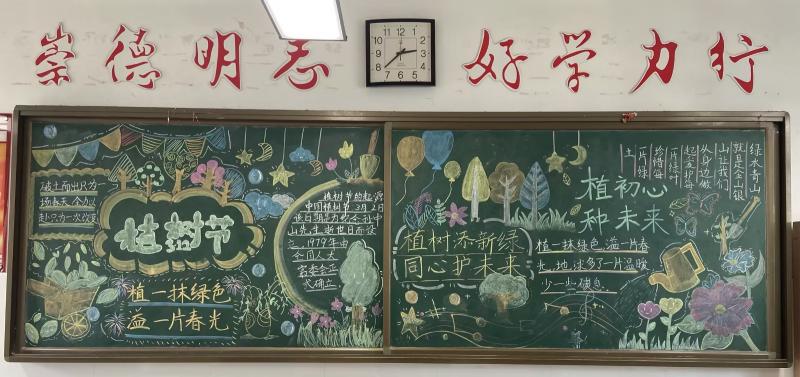 崇德明志
好学力行
破土而出只为一
场春天 令办以
赴只为一次改变
植树节
植一抹绿色
溢一片春光
植树节的起源
中国植树节3月12
该日期是为纪念孙中
山先生逝世日而设
立，1979年由
全国人大
常委会正
式确立
植树添新绿
同心护未来
植初心
种未来
植一抹绿色，溢一片春
光，地球多了一片温暖
少一些褐色
绿水青山
就是金山银
山让我们
从身边做
起爱护每
一片绿叶
珍惜每
一片绿
土